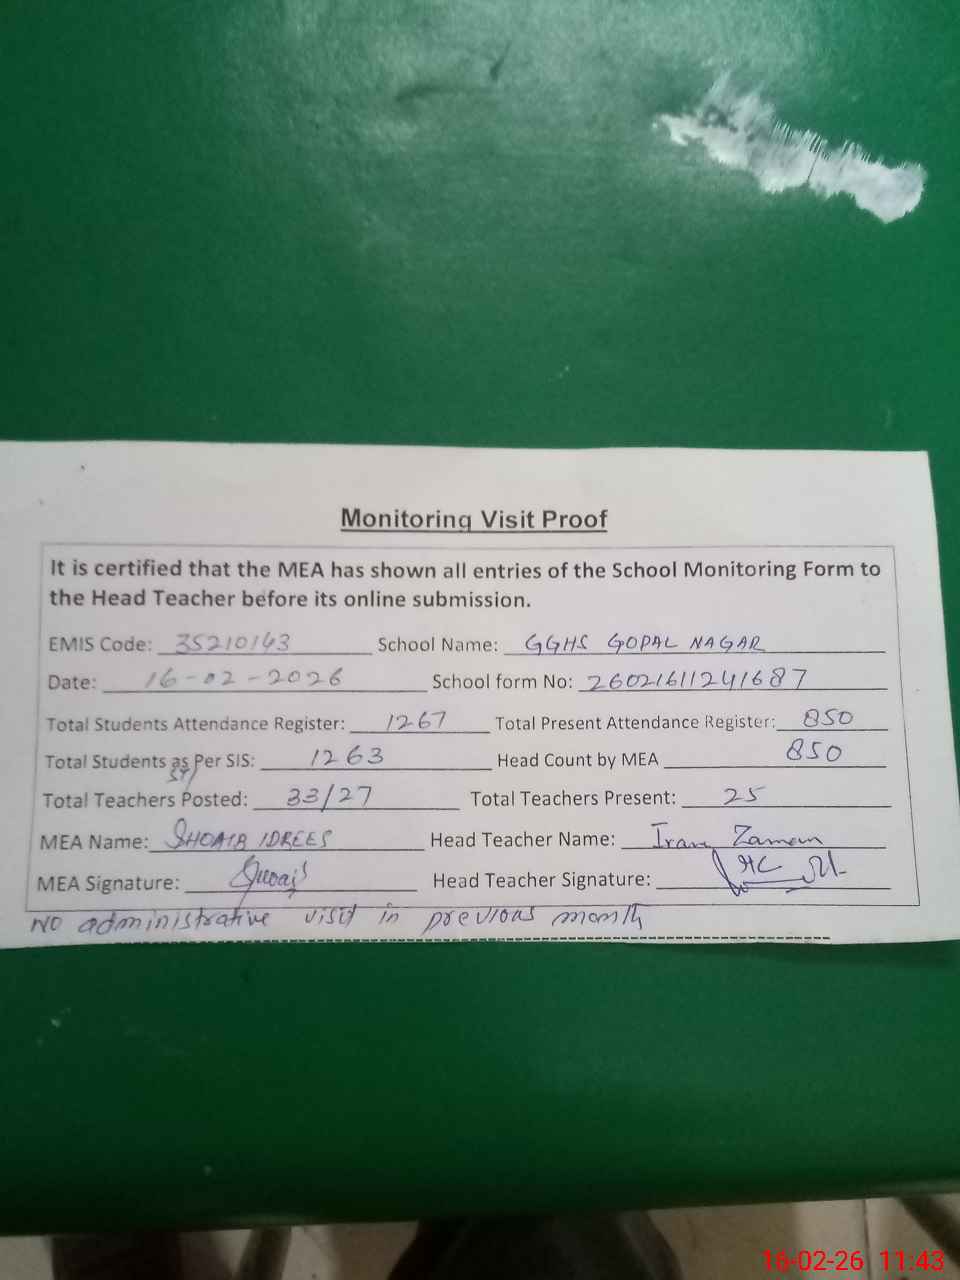 Monitoring Visit Proof
It is certified that the MEA has shown all entries of the School Monitoring Form to
the Head Teacher before its online submission.
EMIS Code: 35210143 School Name: GGHS GOPAL NAGAR
Date: 16-02-2026 School form No: 26021611241687
Total Students Attendance Register: 1267 Total Present Attendance Register: 850
Total Students as Per SIS: 1263 Head Count by MEA 850
Total Teachers Posted: 33/27 Total Teachers Present: 25
MEA Name: SHOAIB IDREES Head Teacher Name: Iram Zaman
MEA Signature: Shoaib Head Teacher Signature:
NO administrative visit in previous month
16-02-26 11:43